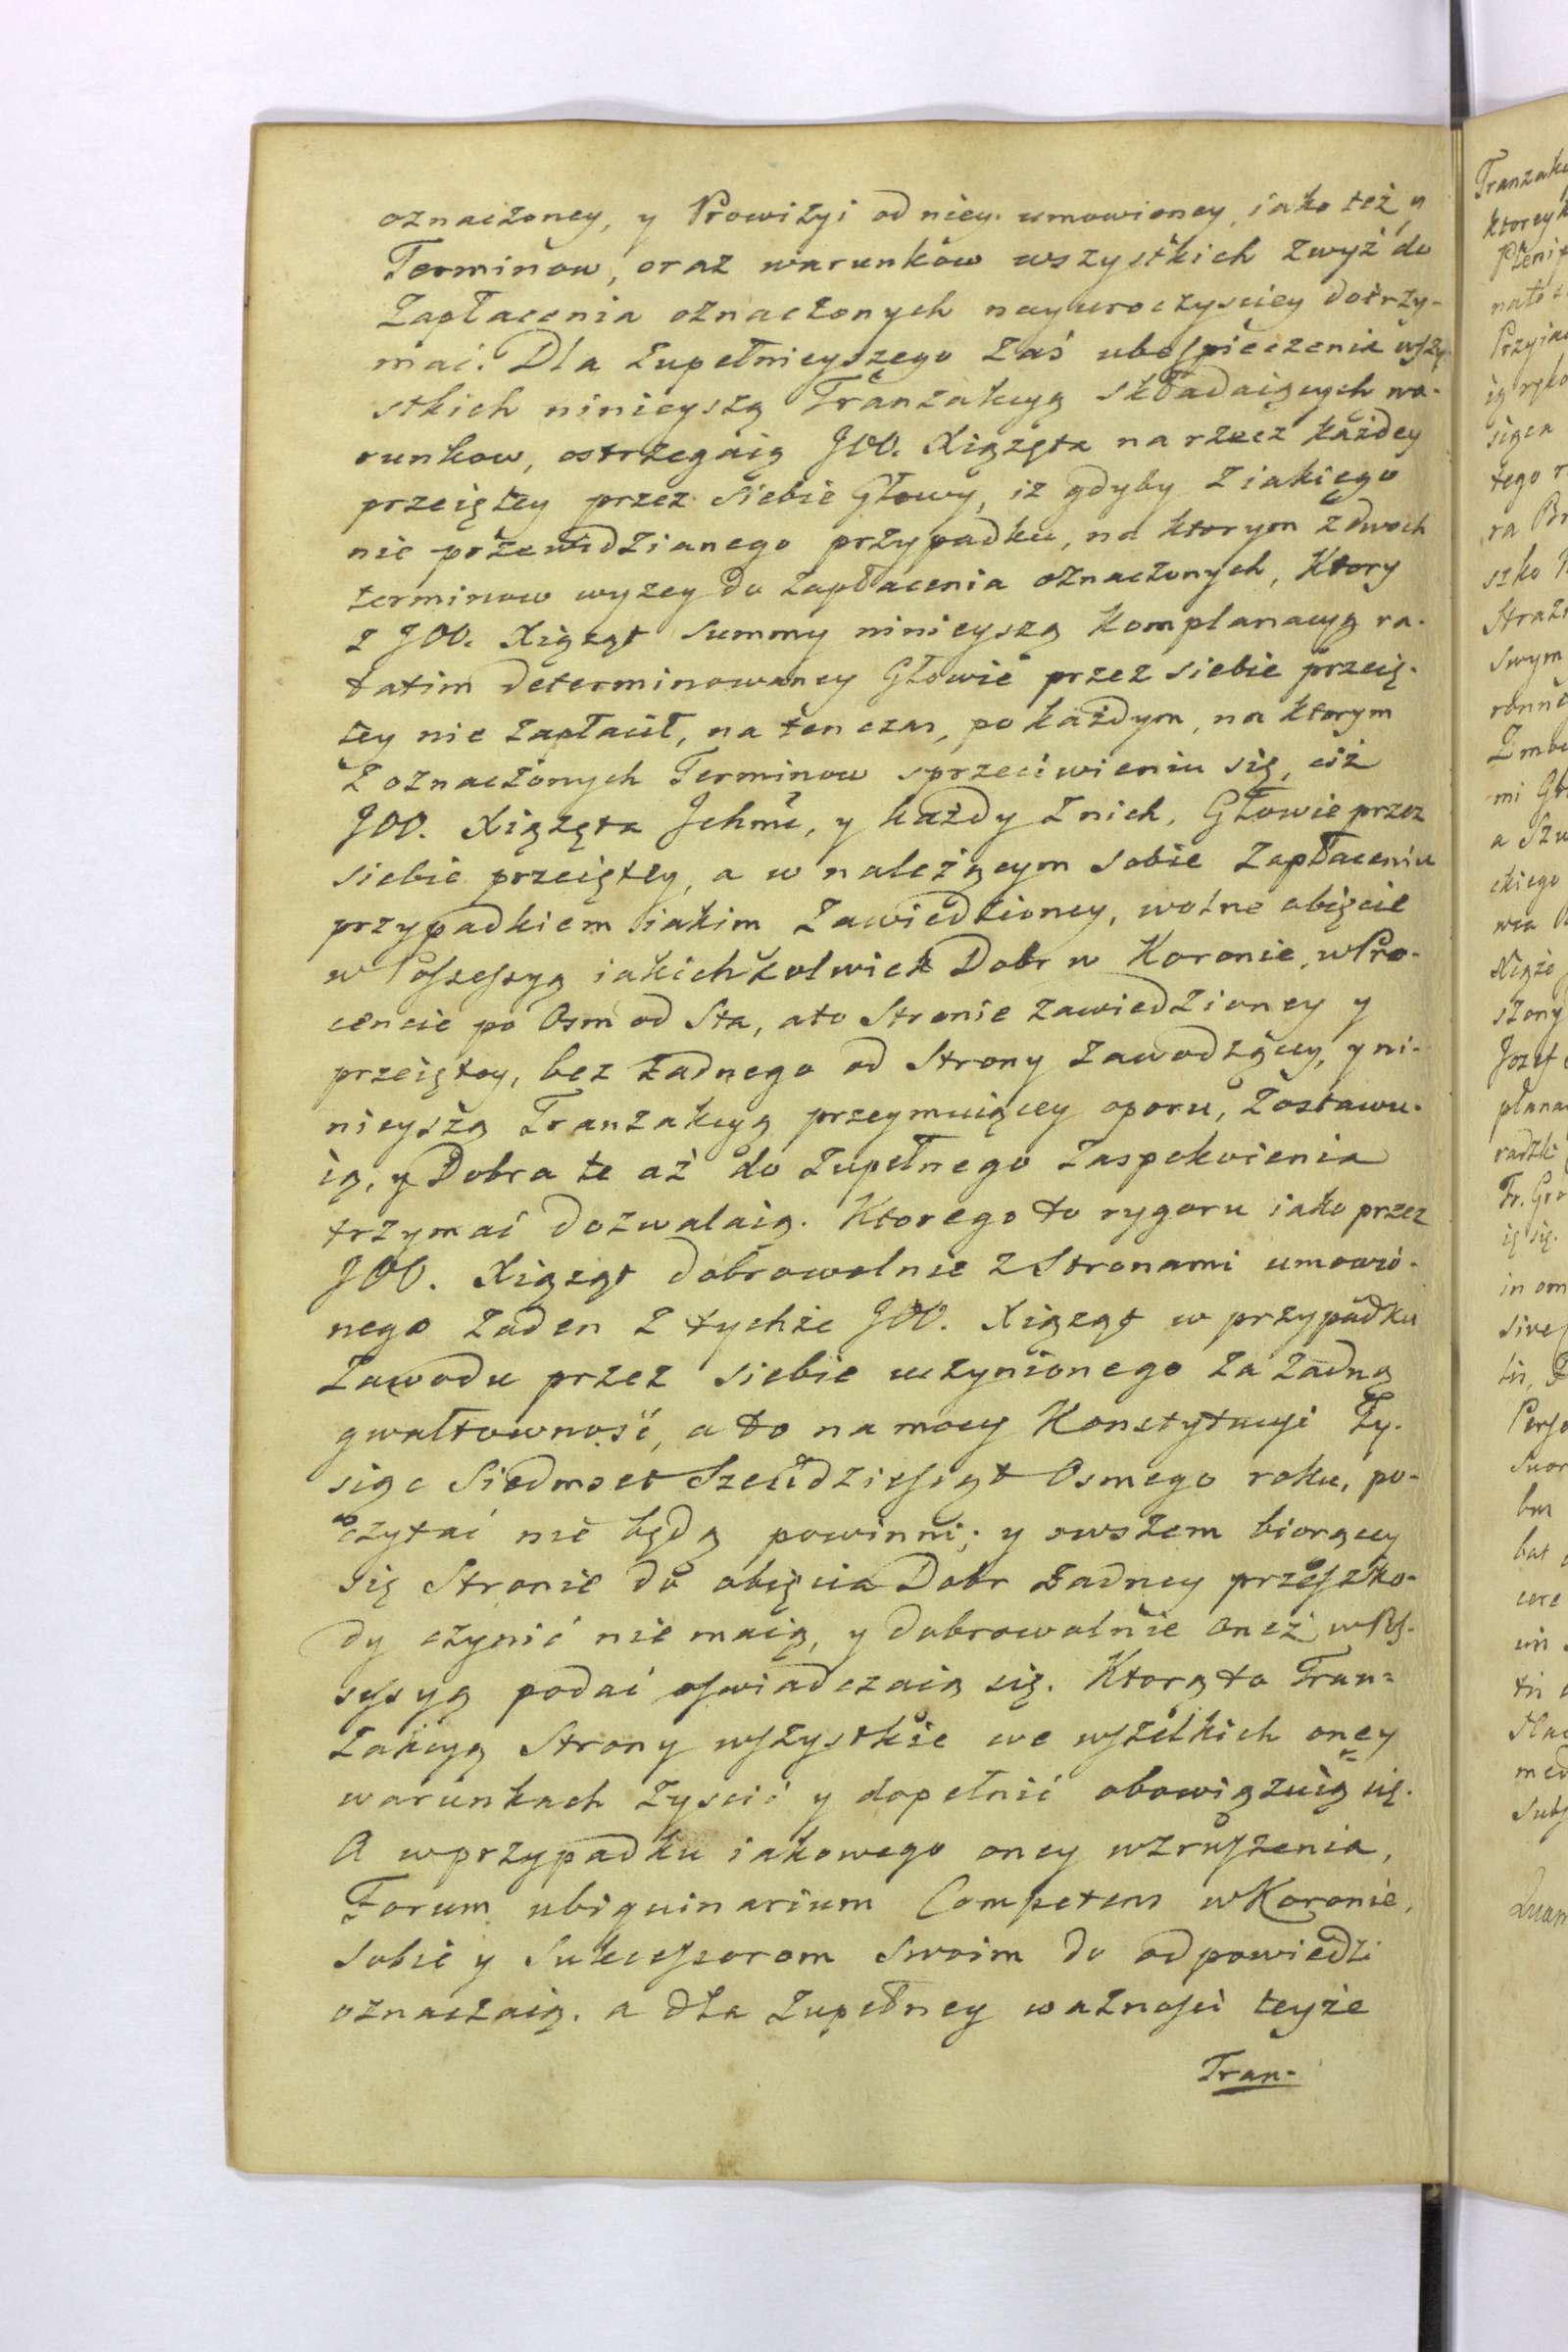 oznaczoney, y Prowizyi od niey umowioney, iako też y
Terminow, oraz warunków wszystkich zwyż do
Zapłacenia oznaczonych nayuroczysciey dotrzy-
mać. Dla zupełnieyszego zaś ubespieczenia wszy-
stkich ninieyszą Tranzakcyą składaiących wa-
runkow, ostrzegaią JOO. Xiążęta na rzecz każdey
przeiętey przez siebie Głowy, iż gdyby z iakiego
nie przewidzianego przypadku, na ktorym z dwoch
terminow wyzey do zapłacenia oznaczonych, Ktory
z JOO. Xiążąt Summy ninieyszą Komplanacyą ra-
tatim determinowaney Głowie przez siebie przeię-
tey nie zapłacił, na ten czas, po każdym, na ktorym
z oznaczonych Terminow sprzeciwieniu się, ciż
JOO. Xiążęta Jchmć, y każdy z nich, Głowie przez
siebie przeiętey, a w należącym sobie Zapłaceniu
przypadkiem iakim Zawiedzioney, wolne obięcie
w Possessyą iakichkolwiek Dobr w Koronie, w Pro-
cencie po Osm od Sta, a to Stronie zawiedzioney y
przeiętey, bez żadnego od Strony zawodzącey, y ni-
nieyszą Tranzakcyą przeymuiącey oporu, Zostawu-
ią, y Dobra te aż do Zupełnego Zaspokoienia
trzymać dozwalaią. Ktorego to rygoru iako przez
JOO. Xiążąt dobrowolnie z Stronami umowio-
nego żaden z tychże JOO. Xiążąt w przypadku
Zawodu przez siebie uczynionego za żadną
gwałtowność, a to na mocy Konstytucyi Ty-
siąc Siedmset Sześćdziesiąt Osmego roku, po-
czytać nie będą powinni; y owszem biorącey
się Stronie do obięcia Dobr żadney przeszko-
dy czynić nie maią, y dobrowolnie oneż w Pos-
sessyą podać oswiadczaią się. Ktorą to Tran-
zakcyą Strony wszystkie we wszelkich oney
warunkach zyscić y dopełnić obowiązuią się.
A w przypadku iakowego oney wzruszenia,
Forum ubiquinarium Competens w Koronie,
Sobie y Sukcessorom Swoim do odpowiedzi
oznaczaią. a dla Zupełney ważności teyże
Tran-